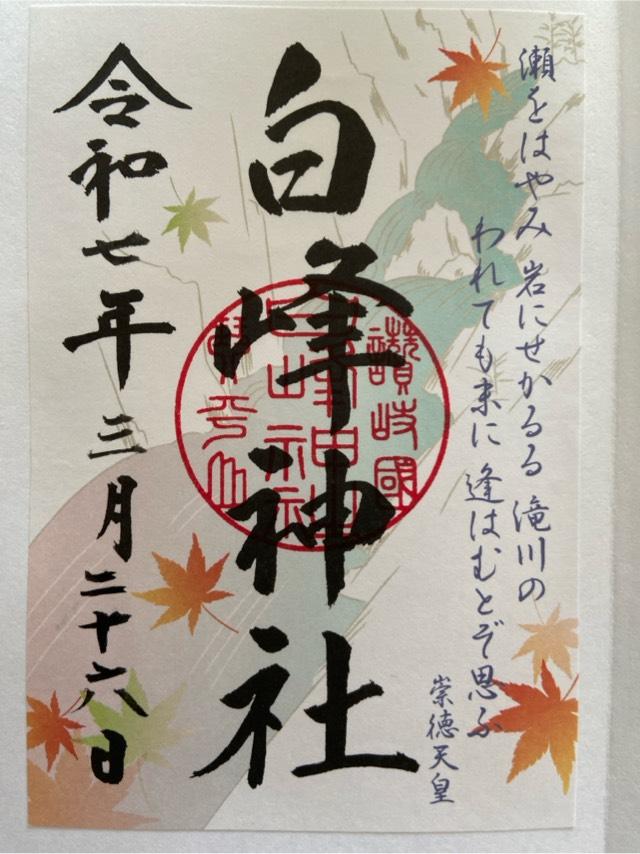 瀬をはやみ 岩にせかるる 滝川の
われても末に 逢はむとぞ思ふ
崇徳天皇
白峰神社
讚岐國
令和七年三月二十六日